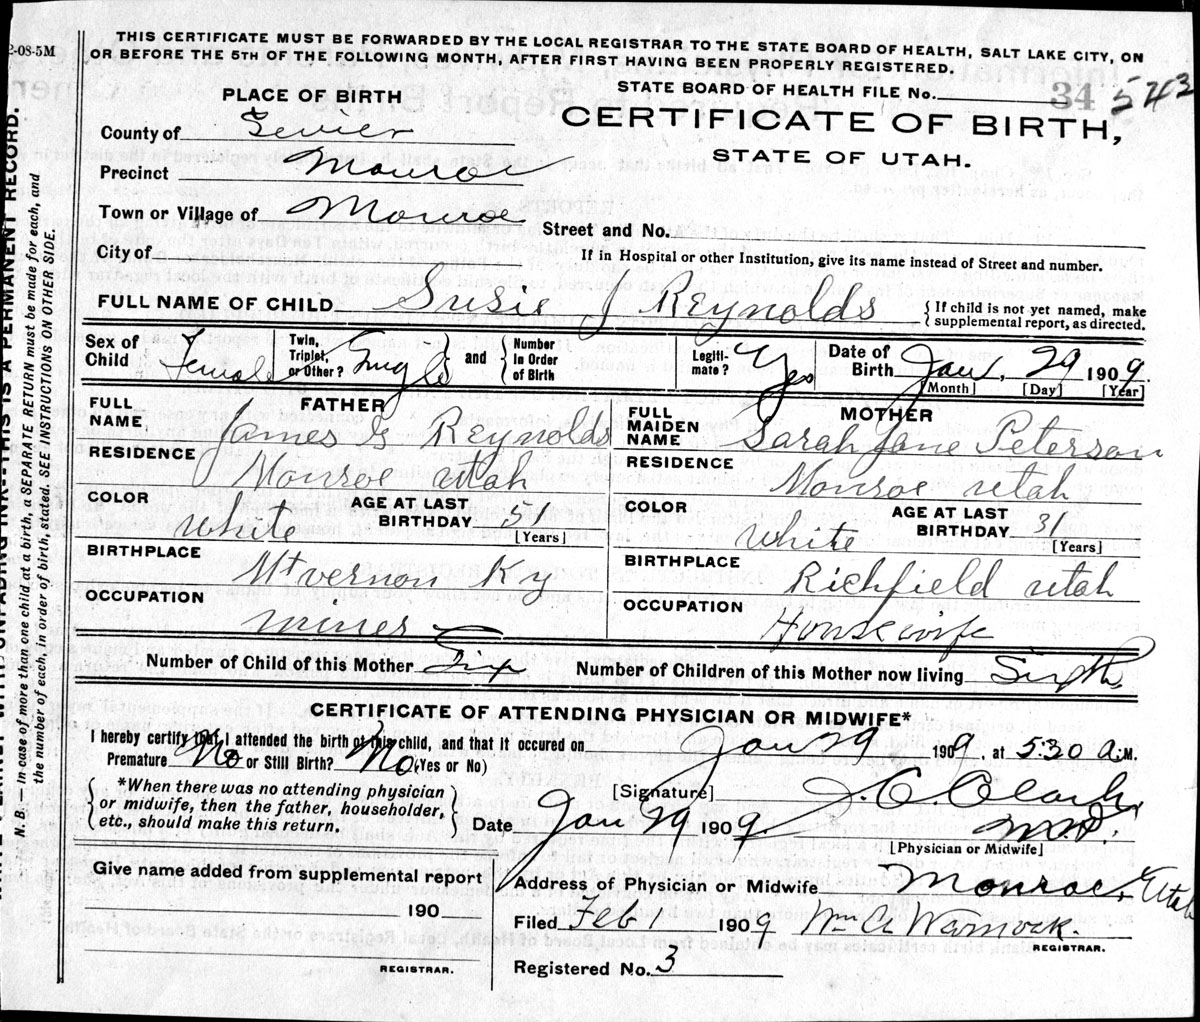 2-08-5M
THIS CERTIFICATE MUST BE FORWARDED BY THE LOCAL REGISTRAR TO THE STATE BOARD OF HEALTH, SALT LAKE CITY, ON
OR BEFORE THE 5TH OF THE FOLLOWING MONTH, AFTER FIRST HAVING BEEN PROPERLY REGISTERED.
STATE BOARD OF HEALTH FILE No. 34 543
PLACE OF BIRTH
CERTIFICATE OF BIRTH,
STATE OF UTAH.
County of Sevier
Precinct Monroe
Town or Village of Monroe
Street and No.
City of
If in Hospital or other Institution, give its name instead of Street and number.
FULL NAME OF CHILD Susie J Reynolds
{If child is not yet named, make
supplemental report, as directed.
Sex of Child Female
Twin, Triplet, or Other? Single } and { Number in Order of Birth
Legitimate? Yes
Date of Birth Jan. 29 1909.
[Month] [Day] [Year]
FATHER
FULL NAME James G Reynolds
RESIDENCE Monroe Utah
COLOR White
AGE AT LAST BIRTHDAY
[Years]
BIRTHPLACE Mt vernon Ky
OCCUPATION miner
MOTHER
FULL MAIDEN NAME Sarah Jane Peterson
RESIDENCE Monroe Utah
COLOR White
AGE AT LAST BIRTHDAY 31
[Years]
BIRTHPLACE Richfield Utah
OCCUPATION Housewife
Number of Child of this Mother Six
Number of Children of this Mother now living Sixth
CERTIFICATE OF ATTENDING PHYSICIAN OR MIDWIFE*
I hereby certify that I attended the birth of this child, and that it occured on Jan 29 1909, at 530 a.M.
Premature No or Still Birth? No (Yes or No)
*When there was no attending physician
or midwife, then the father, householder,
etc., should make this return.
[Signature] J. C. Clark
M.D.
Date Jan 29 1909.
[Physician or Midwife]
Give name added from supplemental report
190
REGISTRAR.
Address of Physician or Midwife Monroe, Utah
Filed Feb 1 1909 Wm A Warnock.
REGISTRAR.
Registered No. 3
UNFADING INK--THIS IS A PERMANENT RECORD.
N. B.—In case of more than one child at a birth, a SEPARATE RETURN must be made for each, and
the number of each, in order of birth, stated. SEE INSTRUCTIONS ON OTHER SIDE.